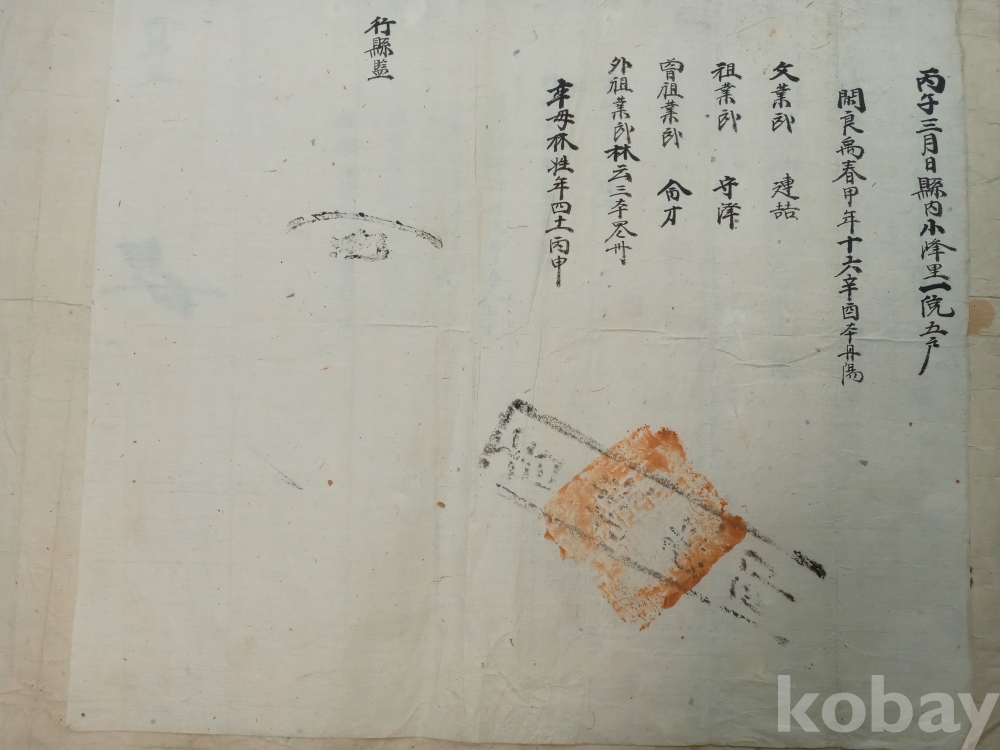 丙午三月日縣內小峰里一統五戶
閑良禹春甲年十六辛酉本丹陽
父業武 連喆
祖業武 守澤
曾祖業武 命才
外祖業武林云三本
率母林姓年四十丙申
行縣監
kobay